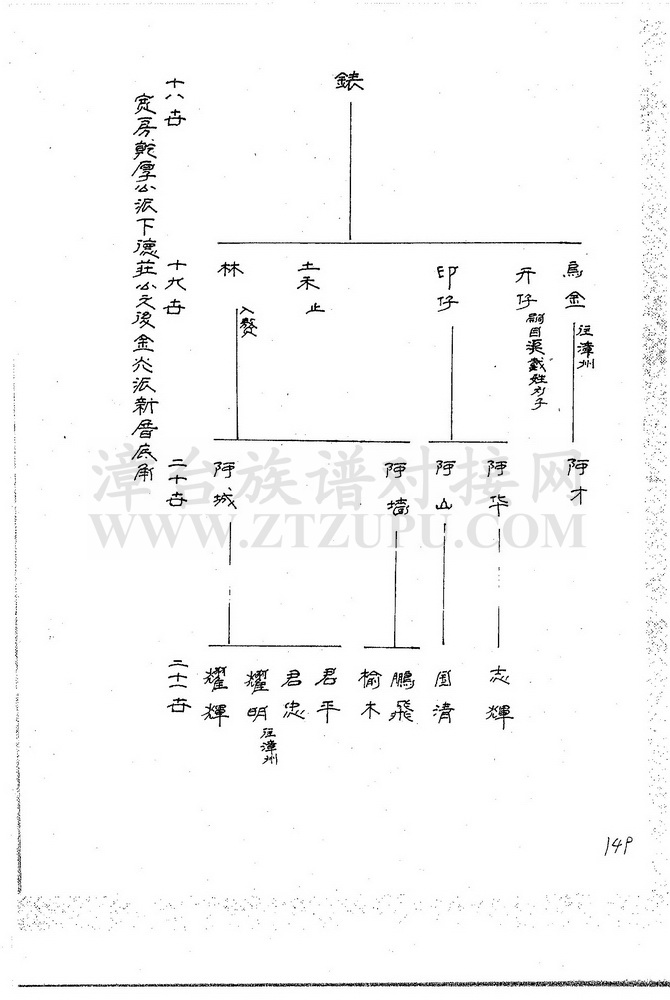 十八世
錶
十九世
烏金
往漳州
开仔
印仔
土禾
止
林
入贅
二十世
阿才
阿华
阿山
阿墻
阿城
二十一世
志輝
国清
鵬飛
榆木
君平
君忠
耀明
往漳州
耀輝
宽房乾厚公派下德莊公之後金火派新厝底角
漳台族谱对接网
WWW.ZTZUPU.COM
149